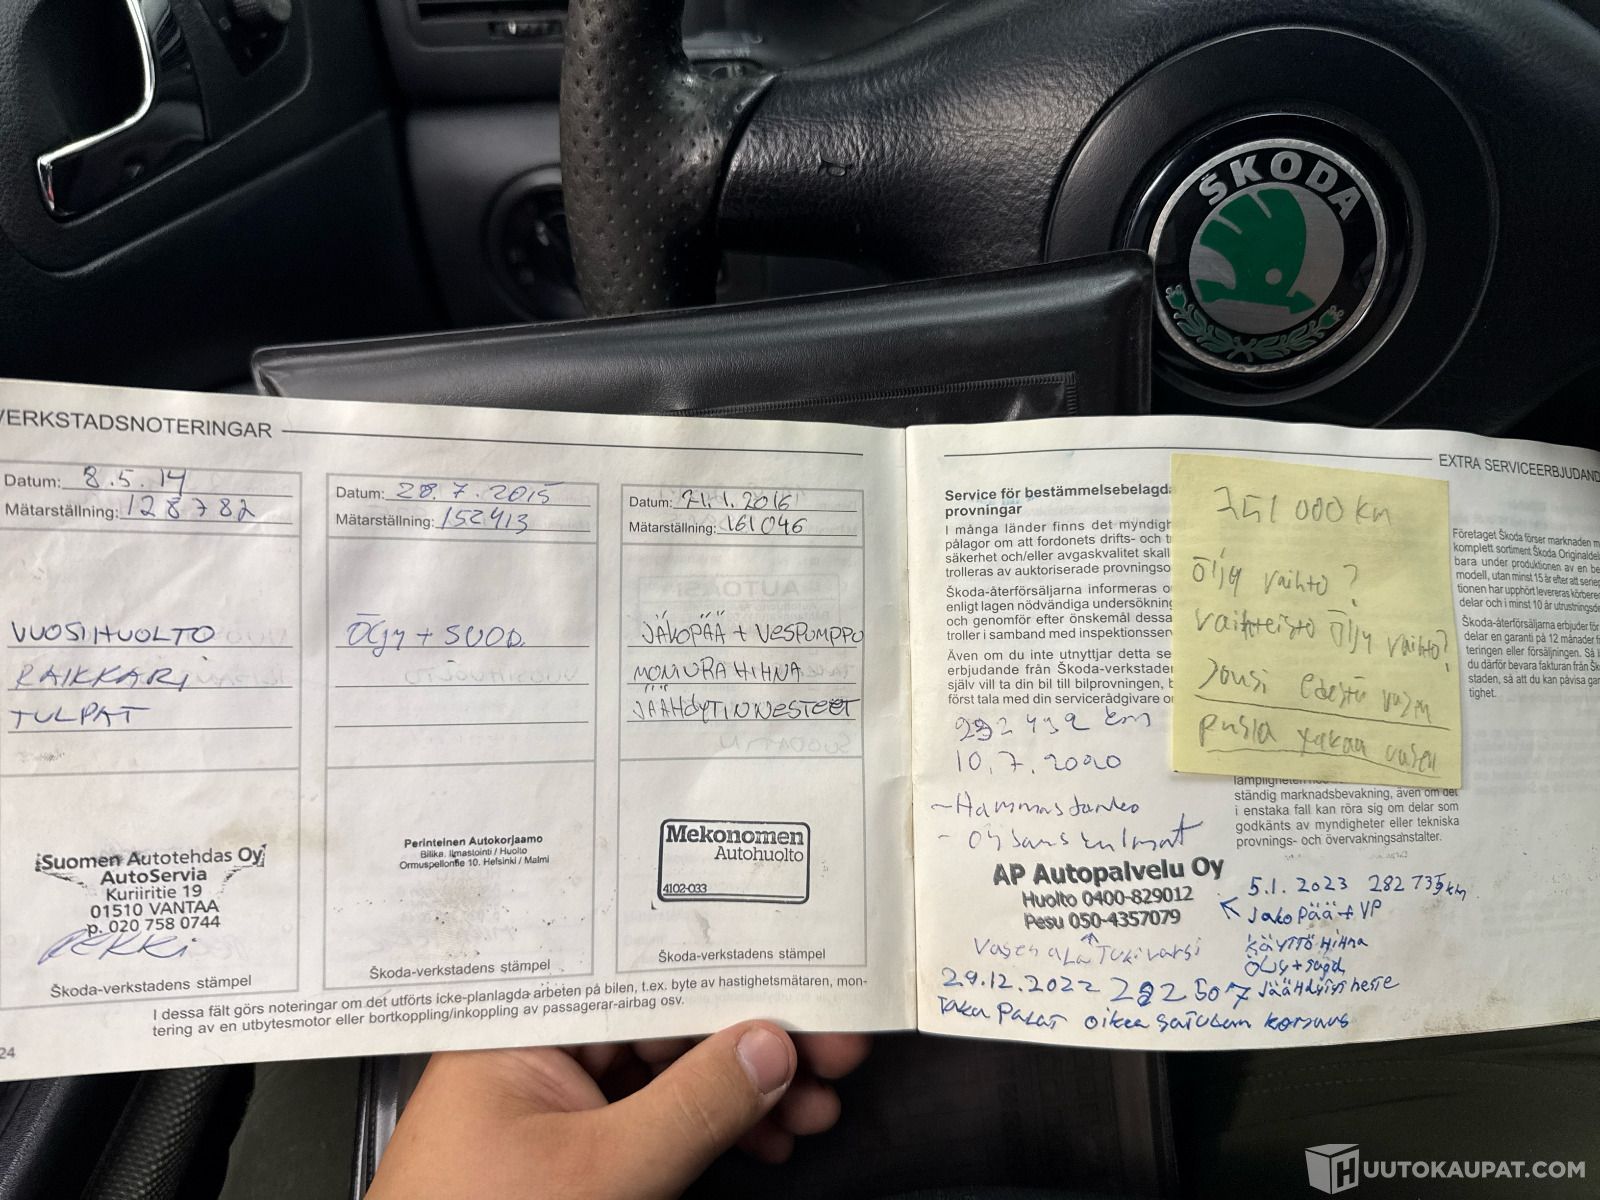 ŠKODA
VERKSTADSNOTERINGAR
Datum: 8.5.14
Mätarställning: 128782
VUOSIHUOLTO
RAIKKARI
TULPAT
Suomen Autotehdas Oy
AutoServia
Kuriiritie 19
01510 VANTAA
p. 020 758 0744
Škoda-verkstadens stämpel
Datum: 28.7.2015
Mätarställning: 152413
ÖLJY + SUOD.
Perinteinen Autokorjaamo
Bilika, Ilmastointi / Huolto
Ormuspellontie 10. Helsinki / Malmi
Škoda-verkstadens stämpel
Datum: 21.1.2016
Mätarställning: 161046
JAKOPÄÄ + VESPUMPPU
MONIURAHIHNA
JÄÄHDYTINNESTEET
Mekonomen
Autohuolto
4102-033
Škoda-verkstadens stämpel
I dessa fält görs noteringar om det utförts icke-planlagda arbeten på bilen, t.ex. byte av hastighetsmätaren, mon-
tering av en utbytesmotor eller bortkoppling/inkoppling av passagerar-airbag osv.
24
EXTRA SERVICEERBJUDAND
Service för bestämmelsebelagda
provningar
I många länder finns det myndigh
pålagor om att fordonets drifts- och t
säkerhet och/eller avgaskvalitet skall
trolleras av auktoriserade provningso
Škoda-återförsäljarna informeras o
enligt lagen nödvändiga undersökning
och genomför efter önskemål dessa
troller i samband med inspektionsser
Även om du inte utnyttjar detta se
erbjudande från Škoda-verkstader
själv vill ta din bil till bilprovningen, b
först tala med din servicerådgivare o
km
10.7.2020
- Hammastanko
AP Autopalvelu Oy
Huolto 0400-829012
Pesu 050-4357079
Vasen ala Tukivarsi
29.12.2022 282 507
Taka Palat oikea satulan korjaus
351 000 km
Öljy vaihto?
vaihteisto öljy vaihto?
Jousi edestä vasen
pusla takaa vasen
lämpligheten
ständig marknadsbevakning, även om det
i enstaka fall kan röra sig om delar som
godkänts av myndigheter eller tekniska
provnings- och övervakningsanstalter.
5.1.2023 282 735 km
Jakopää + VP
KÄYTTÖHIHNA
ÖLJY + suod
Jäähdytysneste
Företaget Škoda förser marknaden m
komplett sortiment Škoda Originaldel
bara under produktionen av en be
modell, utan minst 15 år efter att serie
tionen har upphört levereras körbere
delar och i minst 10 år utrustningsde
Škoda-återförsäljarna erbjuder för
delar en garanti på 12 månader f
teringen eller försäljningen. Så l
du därför bevara fakturan från Šk
staden, så att du kan påvisa gar
tighet.
HUUTOKAUPAT.COM